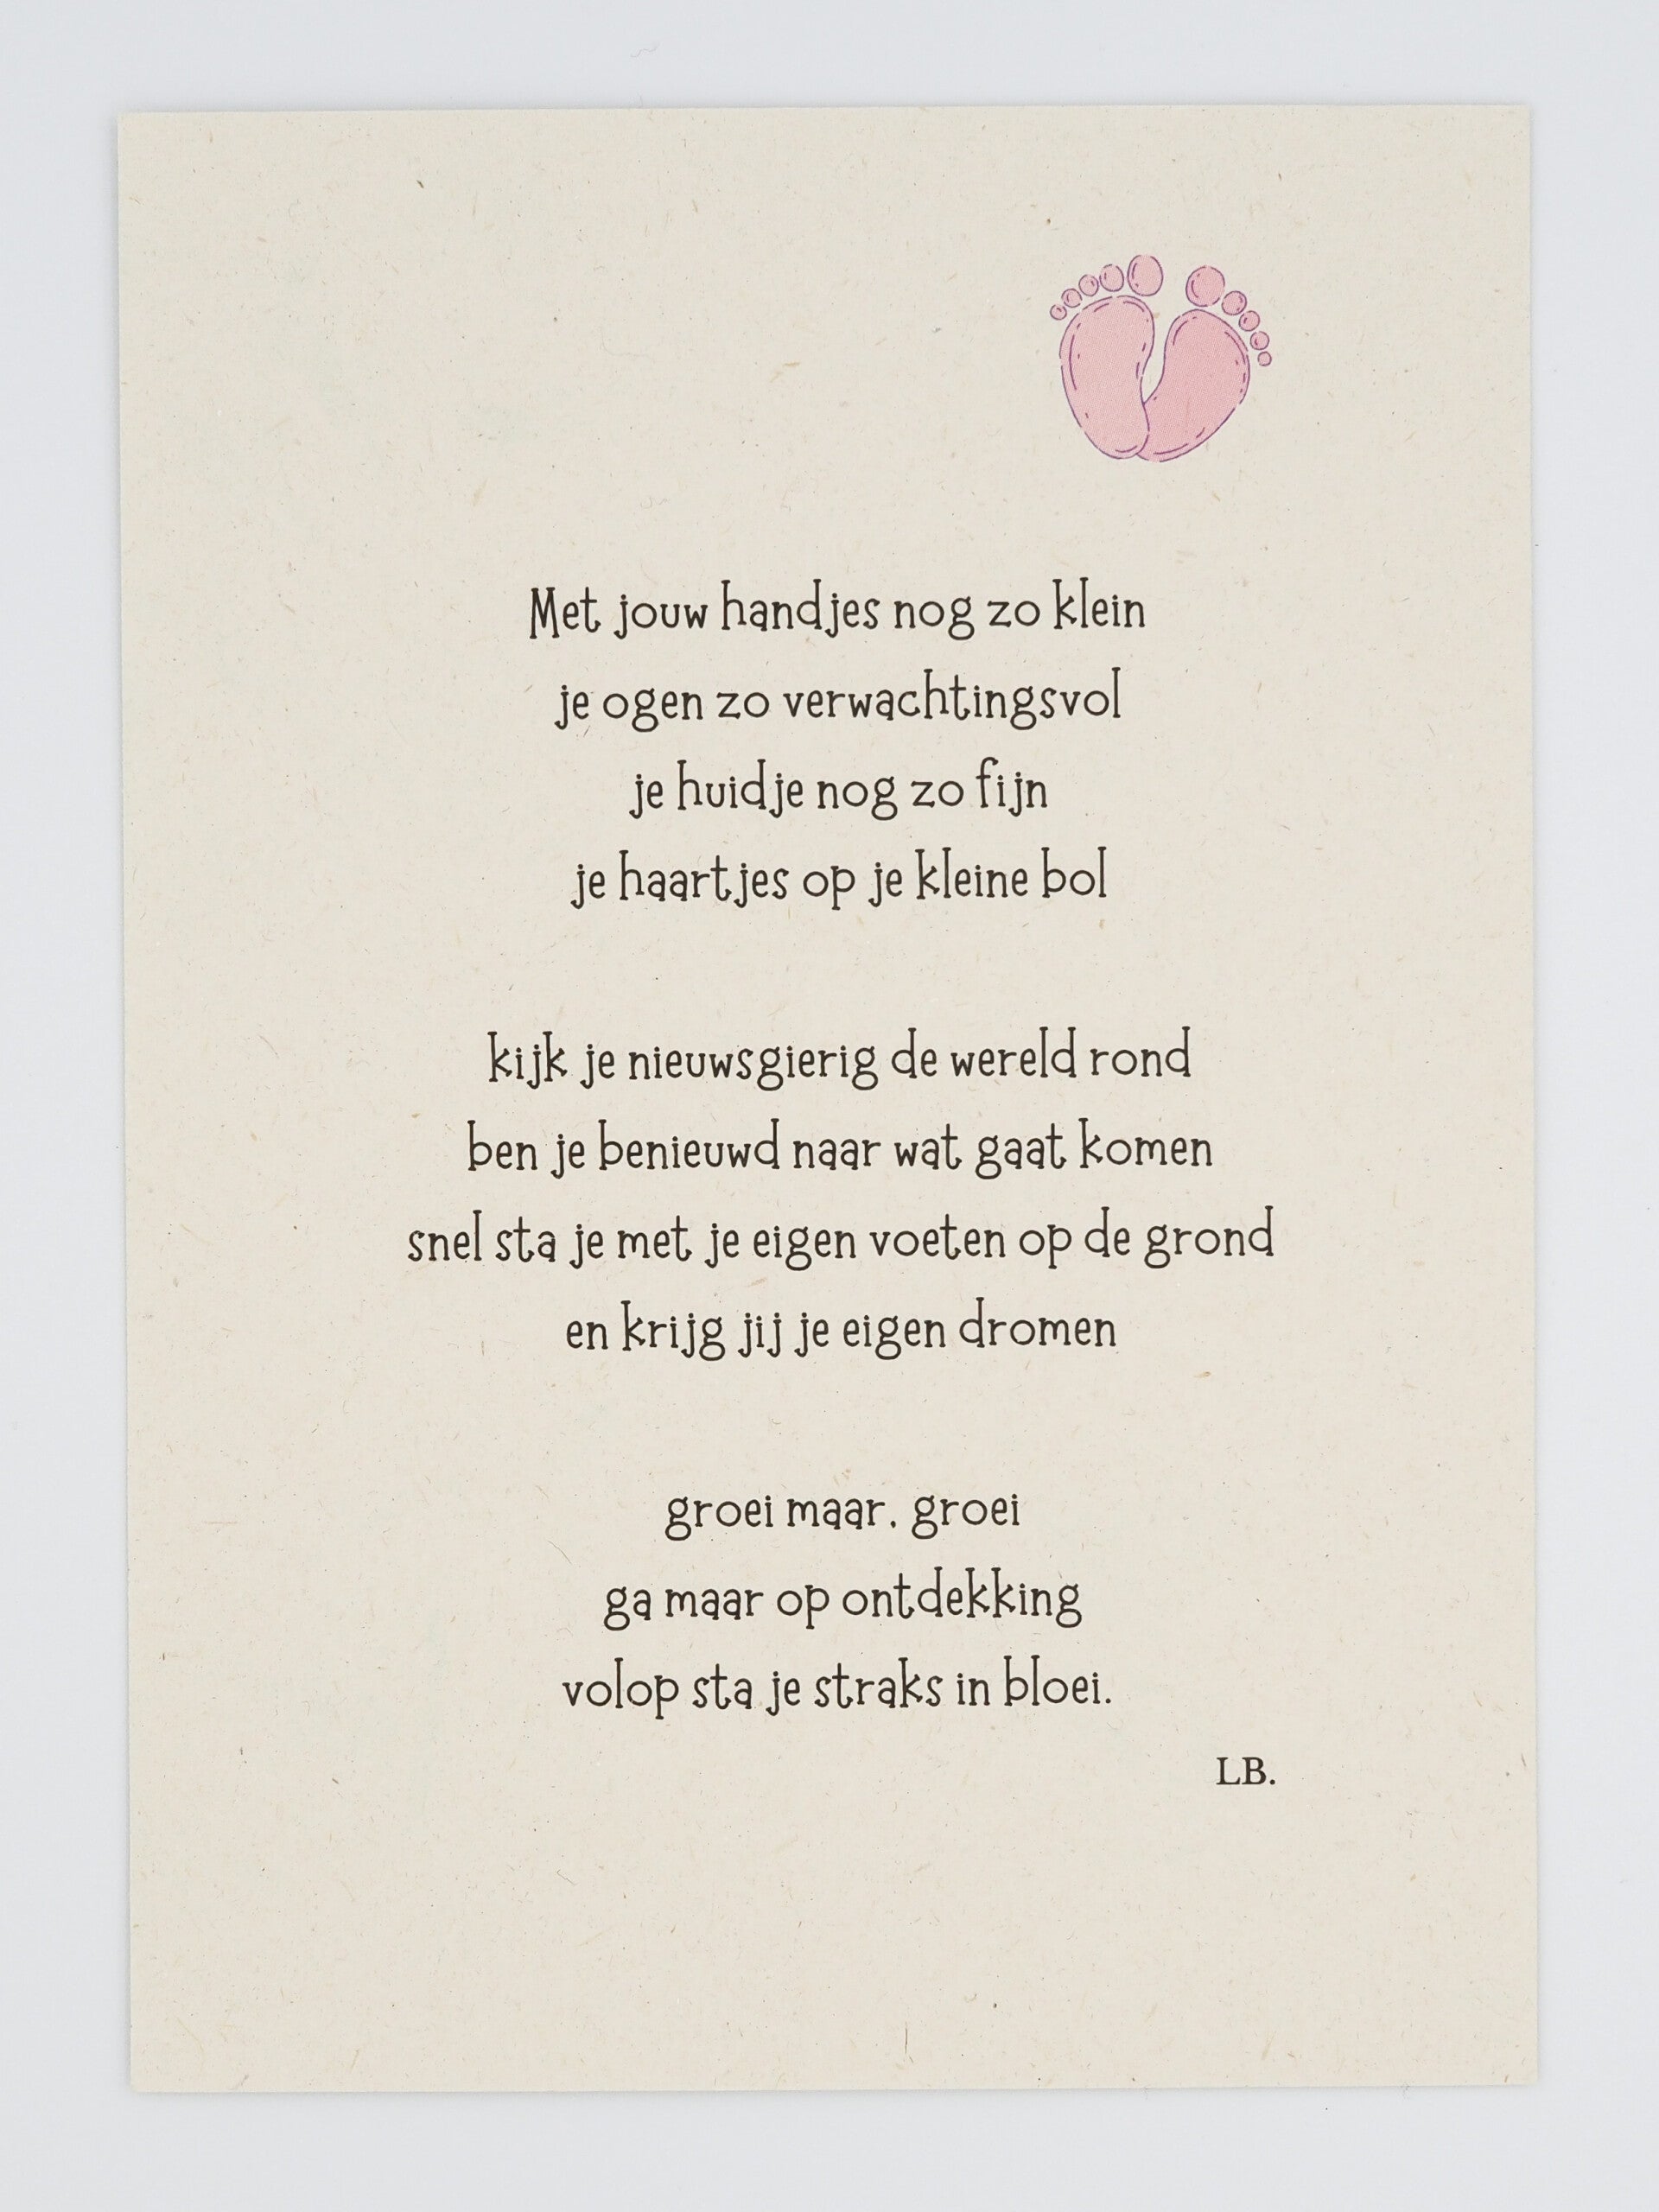 Met jouw handjes nog zo klein
je ogen zo verwachtingsvol
je huidje nog zo fijn
je haartjes op je kleine bol
kijk je nieuwsgierig de wereld rond
ben je benieuwd naar wat gaat komen
snel sta je met je eigen voeten op de grond
en krijg jij je eigen dromen
groei maar, groei
ga maar op ontdekking
volop sta je straks in bloei.
LB.